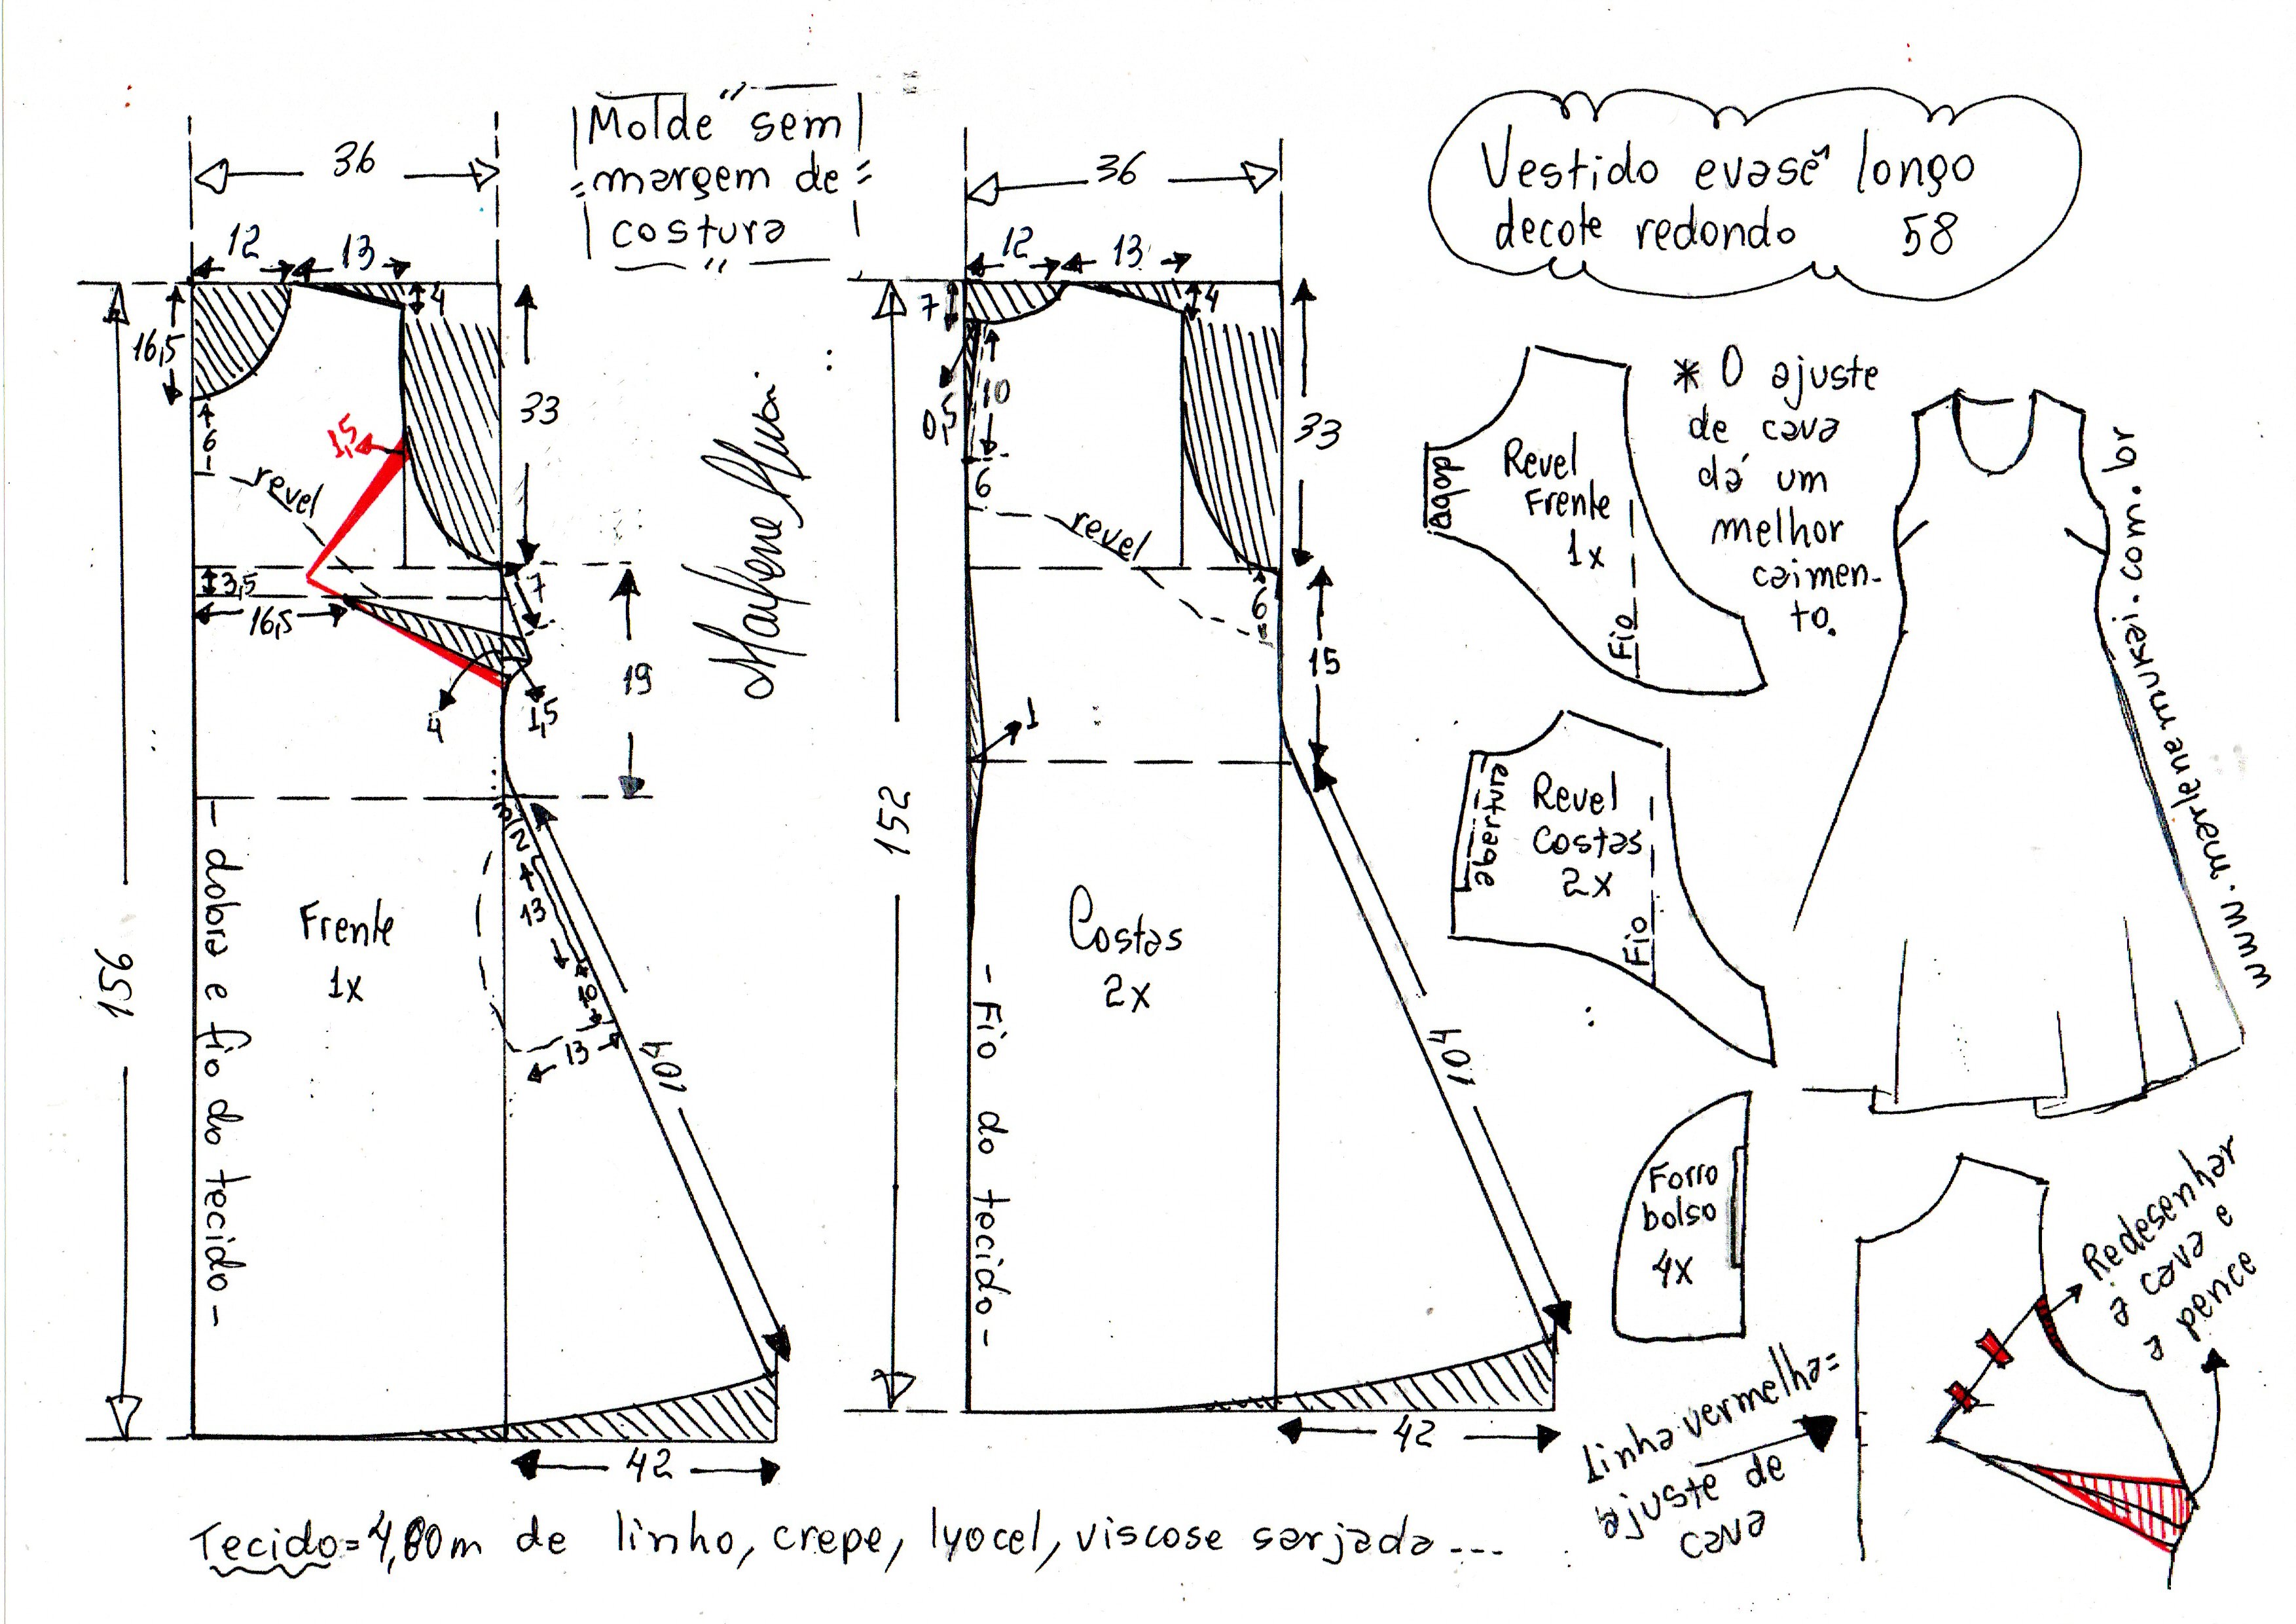 Vestido evasê longo
decote redondo 58
"Molde sem
margem de
costura"
36
12
13
4
16,5
6
1,5
revel
33
3,5
16,5
7
4
1,5
19
3
2
13
10
13
104
156
Frente
1x
- dobra e fio do tecido -
42
36
12
13
4
7
0,5
10
6
revel
33
6
15
1
152
Costas
2x
- Fio do tecido -
104
42
dobra
Revel
Frente
1x
Fio
* O ajuste
de cava
dá um
melhor
caimen-
to.
abertura
Revel
Costas
2x
Fio
www.marlenemukai.com.br
Forro
bolso
4x
linha vermelha=
ajuste de
cava
Redesenhar
a cava e
a pence
Tecido=4,80m de linho, crepe, lyocel, viscose sarjada...